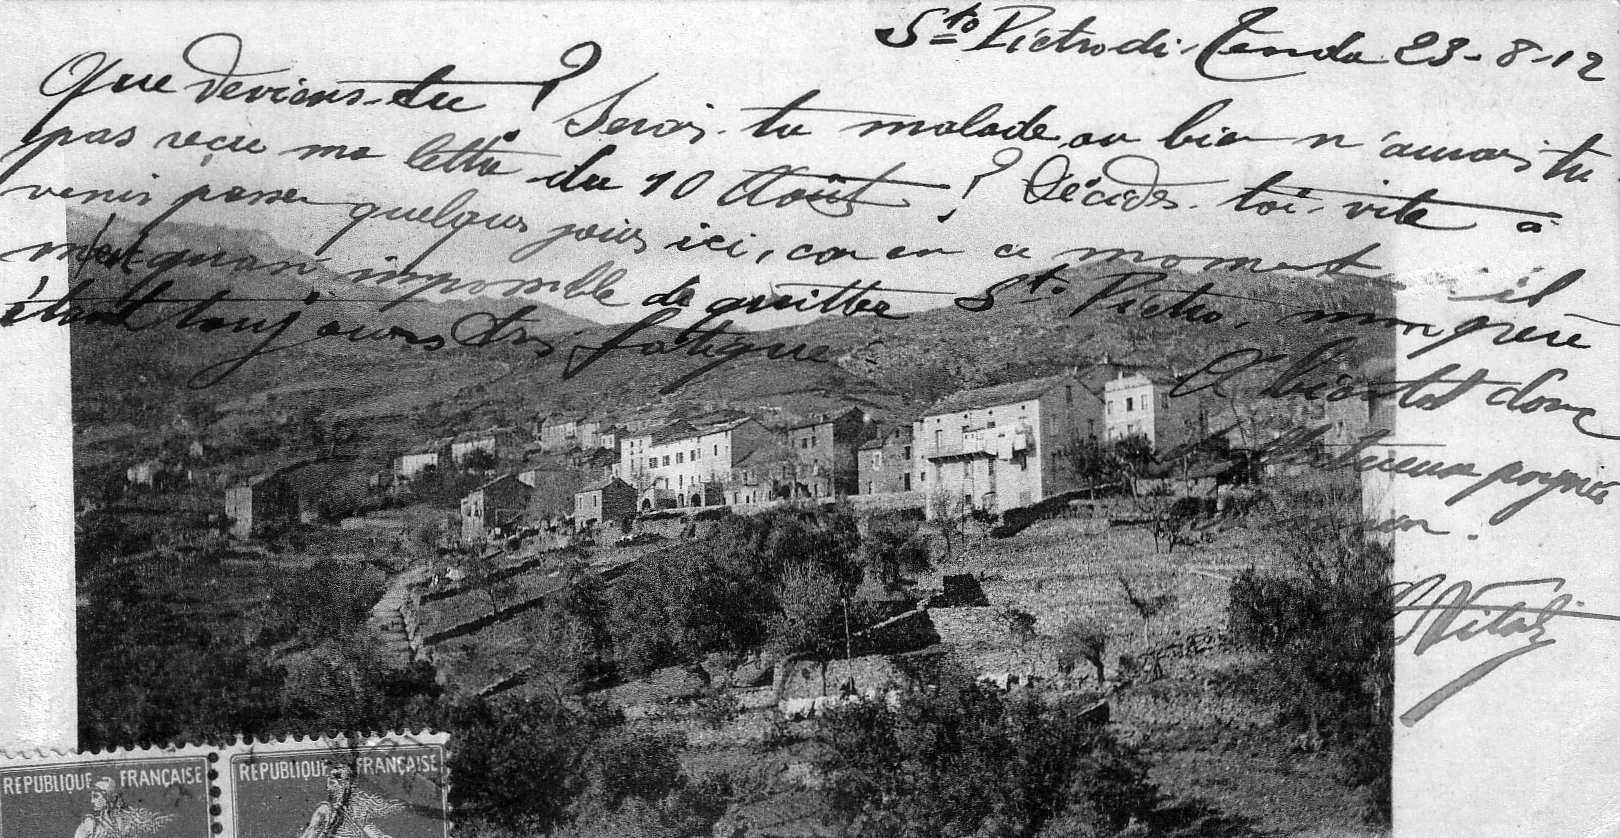 Sto Pietro di Tenda 23-8-12
Que deviens-tu ? Serais-tu malade ou bien n'aurais tu
pas reçu ma lettre du 10 Août ? Décides-toi vite à
venir passer quelques jours ici, car en ce moment il
m'est quasi impossible de quitter Sto Pietro, mon père
étant toujours très fatigué
A bientôt donc
poignée
Vitali
REPUBLIQUE FRANÇAISE
REPUBLIQUE FRANÇAISE